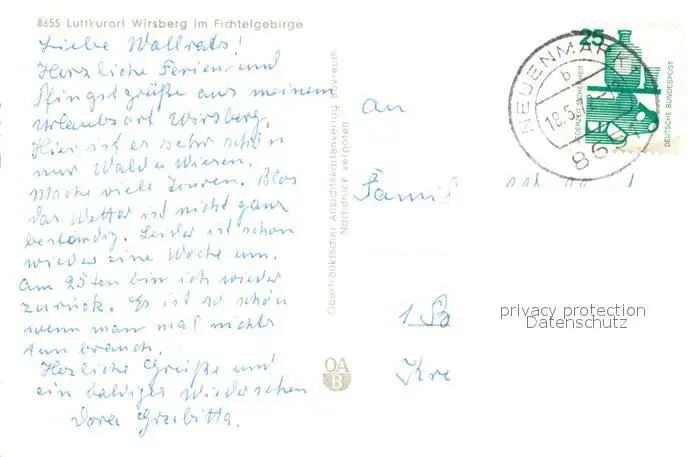 8655 Luftkurort Wirsberg im Fichtelgebirge
Liebe Wallrats!
Herzliche Ferien- und
Pfingstgrüße aus meinem
Urlaubsort Wirsberg.
Hier ist es sehr schön
nur Wald u. Wiesen.
Mache viele Touren. Blos
das Wetter ist nicht ganz
beständig. Leider ist schon
wieder eine Woche um.
Am 25ten bin ich wieder
zurück. Es ist so schön
wenn man mal nichts
tun brauch.
Herzliche Grüße und
ein baldiges Wiedersehen
Dora
Oberfränkischer Ansichtskartenverlag Bayreuth
Nachdruck verboten
OA
B
An
Famil
1
Kre
NEUENMARKT
b
18.5.
860
25
JEDERZEIT SICHERHEIT
DEUTSCHE BUNDESPOST
privacy protection
Datenschutz